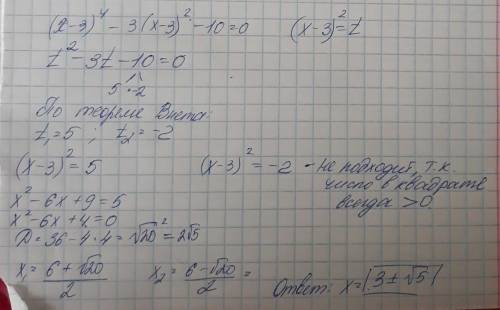 (x-3)⁴ - 3(x-3)² - 10 = 0    (x-3)² = t
t² - 3t - 10 = 0
5 · -2
По теореме Виета:
t₁ = 5 ; t₂ = -2
(x-3)² = 5    (x-3)² = -2 - не подходит, т.к.
число в квадрате
всегда > 0.
x² - 6x + 9 = 5
x² - 6x + 4 = 0
D = 36 - 4·4 = √20² = 2√5
x₁ = (6 + √20)/2    x₂ = (6 - √20)/2 =
Ответ: x = |3 ± √5|